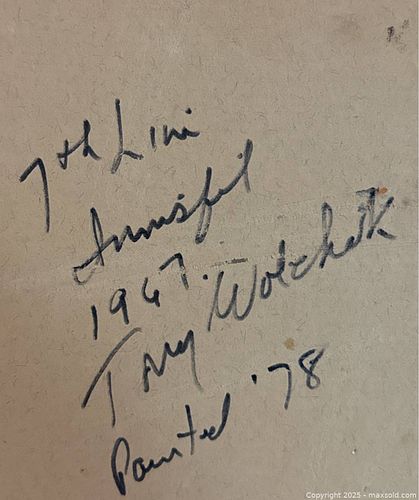 7th Line
Innisfil
1967.
Tory Wolchak
Painted '78
Copyright © 2025 - maxsold.com